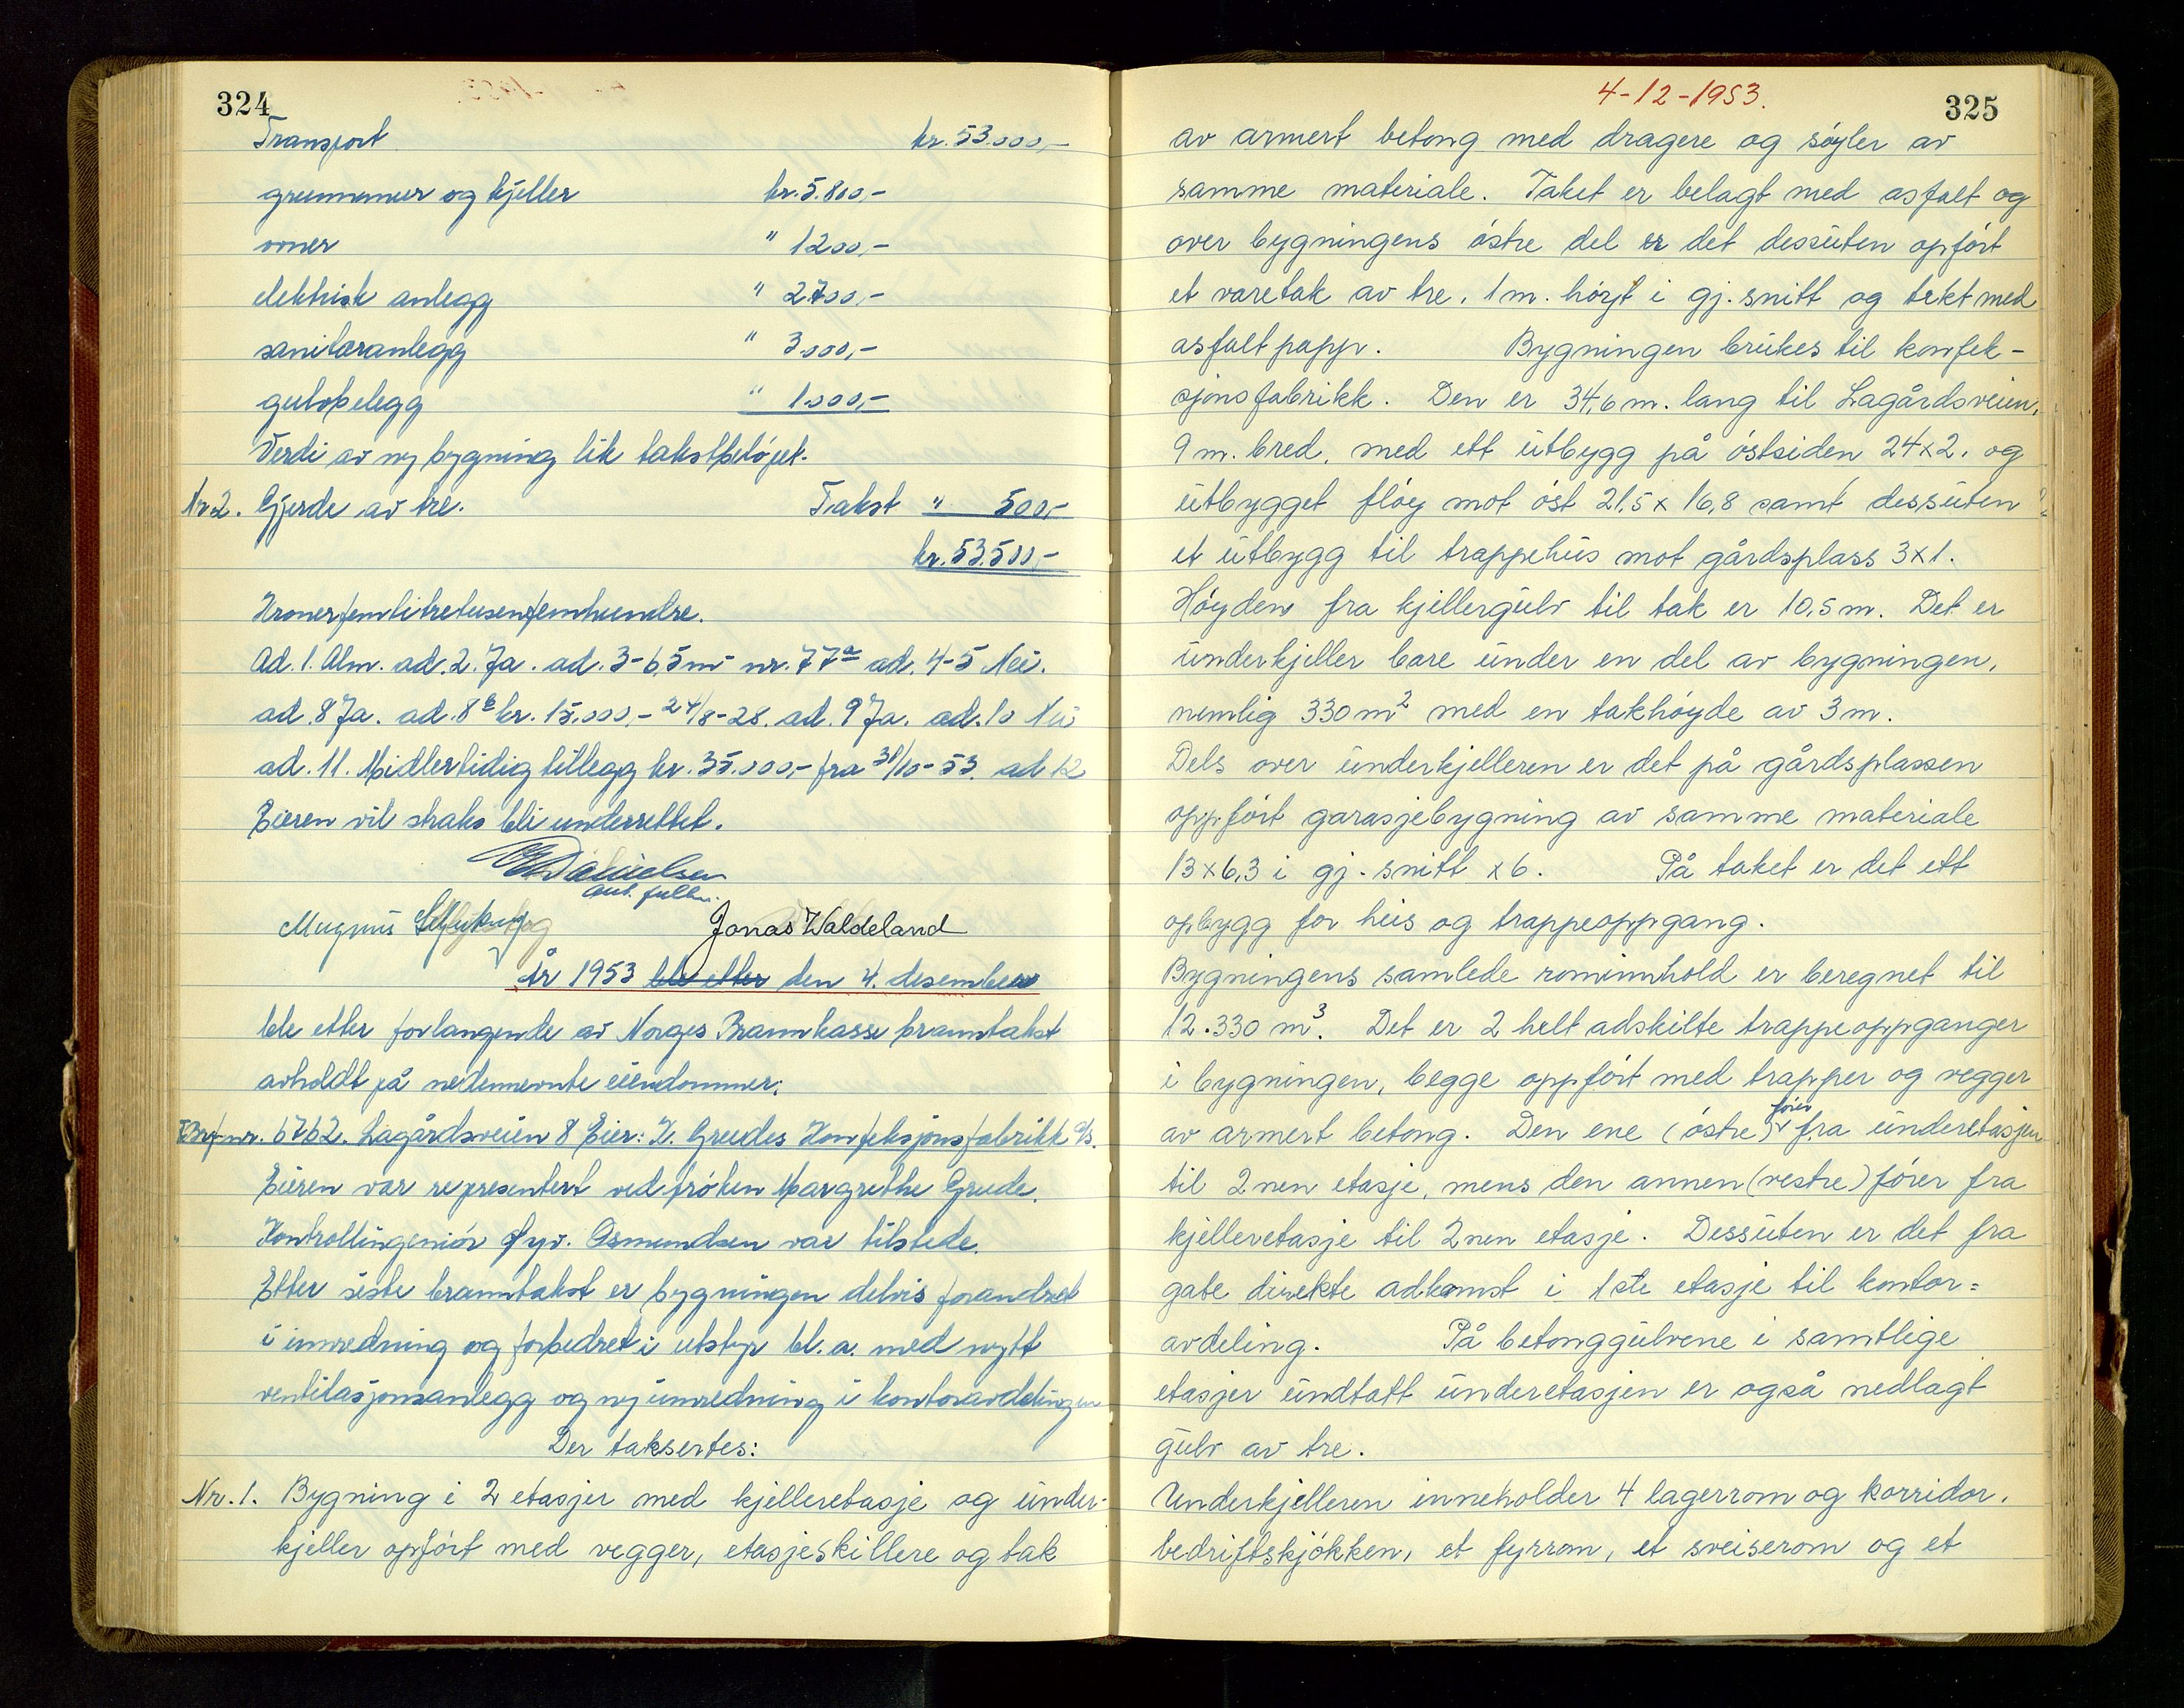 324
Transport kr. 53.000,-
grunnmur og kjeller kr. 5.800,-
ovner " 1200,-
elektrisk anlegg " 2700,-
sanitæranlegg " 3.000,-
gulvbelegg " 1.000,-
Verdi av ny bygning lik takstbeløpet.
Nr 2. Gjerde av tre. Takst " 500,-
kr. 53.500,-
Kroner femtitretusenfemhundre.
Ad. 1. Alm. ad. 2. Ja. ad. 3 - 6,5 m - nr. 77a ad. 4-5 Nei.
ad. 8 Ja. ad. 8b kr. 15.000,- 24/8-28. ad. 9 Ja. ad. 10 Nei
ad. 11. Midlertidig tillegg kr. 35.000,- fra 31/10-53. ad 12
Eieren vil straks bli underrettet.
Danielsen
aut. fullm.
Magnus Jonas Waldeland
År 1953 ble etter den 4. desember
ble etter forlangende av Norges Brannkasse branntakst
avholdt på nedennevnte eiendommer:
Brf.nr. 6762. Lagårdsveien 8 Eier: K. Grudes Konfeksjonsfabrikk A/S.
Eieren var representert ved frøken Margrethe Grude.
Kontrollingeniør Gyv. Osmundsen var tilstede.
Etter siste branntakst er bygningen delvis forandret
i innredning og forbedret i utstyr bl. a. med nytt
ventilasjonsanlegg og ny innredning i kontoravdelingen
Der takseres:
Nr. 1. Bygning i 2 etasjer med kjelleretasje og under-
kjeller opført med vegger, etasjeskillere og tak
4-12-1953.
325
av armert betong med dragere og søyler av
samme materiale. Taket er belagt med asfalt og
over bygningens østre del er det dessuten opført
et varetak av tre, 1 m. høyt i gj. snitt og tekt med
asfaltpapp. Bygningen brukes til konfek-
sjonsfabrikk. Den er 34,6 m. lang til Lagårdsveien,
9 m. bred, med ett utbygg på østsiden 24 x 2, og
utbygget fløy mot øst 21,5 x 16,8 samt dessuten
et utbygg til trappehus mot gårdsplass 3 x 1.
Høyden fra kjellergulv til tak er 10,5 m. Det er
underkjeller bare under en del av bygningen,
nemlig 330 m² med en takhøyde av 3 m.
Dels over underkjelleren er det på gårdsplassen
oppført garasjebygning av samme materiale
13 x 6,3 i gj. snitt x 6. På taket er det ett
opbygg for heis og trappeoppgang.
Bygningens samlede rominnhold er beregnet til
12.330 m³. Det er 2 helt adskilte trappeoppganger
i bygningen, begge oppført med trapper og vegger
av armert betong. Den ene (østre) fører fra underetasjen
til 2nen etasje, mens den annen (vestre) fører fra
kjelleretasje til 2nen etasje. Dessuten er det fra
gate direkte adkomst i 1ste etasje til kontor=
avdeling. På betonggulvene i samtlige
etasjer undtatt underetasjen er også nedlagt
gulv av tre.
Underkjelleren inneholder 4 lagerrom og korridor,
bedriftskjøkken, et fyrrom, et sveiserom og et